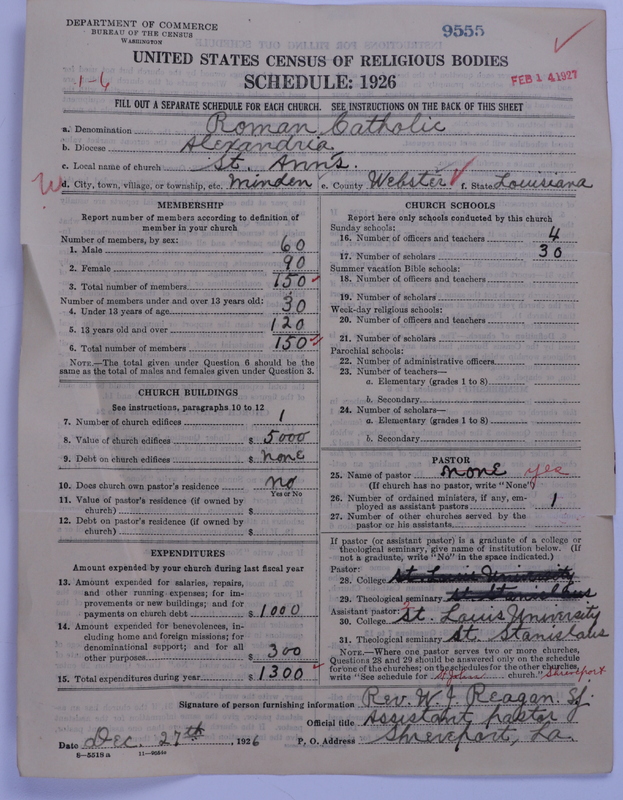 DEPARTMENT OF COMMERCE
BUREAU OF THE CENSUS
WASHINGTON
9555
UNITED STATES CENSUS OF RELIGIOUS BODIES
1-6
SCHEDULE: 1926
FEB 14 1927
FILL OUT A SEPARATE SCHEDULE FOR EACH CHURCH. SEE INSTRUCTIONS ON THE BACK OF THIS SHEET
a. Denomination Roman Catholic
b. Diocese Alexandria
c. Local name of church St. Ann's.
d. City, town, village, or township, etc. Minden e. County Webster f. State Louisiana
MEMBERSHIP
Report number of members according to definition of
member in your church
Number of members, by sex:
1. Male 60
2. Female 90
3. Total number of members 150
Number of members under and over 13 years old:
4. Under 13 years of age 30
5. 13 years old and over 120
6. Total number of members 150
NOTE.—The total given under Question 6 should be the
same as the total of males and females given under Question 3.
CHURCH BUILDINGS
See instructions, paragraphs 10 to 12
7. Number of church edifices 1
8. Value of church edifices $ 5000
9. Debt on church edifices $ none
10. Does church own pastor's residence no
Yes or No
11. Value of pastor's residence (if owned by
church) $
12. Debt on pastor's residence (if owned by
church) $
EXPENDITURES
Amount expended by your church during last fiscal year
13. Amount expended for salaries, repairs,
and other running expenses; for im-
provements or new buildings; and for
payments on church debt $ 1000
14. Amount expended for benevolences, in-
cluding home and foreign missions; for
denominational support; and for all
other purposes $ 300
15. Total expenditures during year $ 1300
CHURCH SCHOOLS
Report here only schools conducted by this church
Sunday schools:
16. Number of officers and teachers 4
17. Number of scholars 30
Summer vacation Bible schools:
18. Number of officers and teachers
19. Number of scholars
Week-day religious schools:
20. Number of officers and teachers
21. Number of scholars
Parochial schools:
22. Number of administrative officers
23. Number of teachers—
a. Elementary (grades 1 to 8)
b. Secondary
24. Number of scholars—
a. Elementary (grades 1 to 8)
b. Secondary
PASTOR
25. Name of pastor none yes
(If church has no pastor, write "None")
26. Number of ordained ministers, if any, em-
ployed as assistant pastors 1
27. Number of other churches served by the
pastor or his assistants
If pastor (or assistant pastor) is a graduate of a college or
theological seminary, give name of institution below. (If
not a graduate, write "No" in the space indicated.)
Pastor:
28. College St. Louis University
29. Theological seminary St Stanislaus
Assistant pastor:
30. College St. Louis University
31. Theological seminary St. Stanislaus
NOTE.—Where one pastor serves two or more churches,
Questions 28 and 29 should be answered only on the schedule
for one of the churches; on the schedules for the other churches,
write "See schedule for St Johns church." Shreveport
Signature of person furnishing information Rev. W. J. Reagan. S.J.
Official title Assistant pastor
Date Dec. 27th, 1926 P. O. Address Shreveport, La.
8—5518a